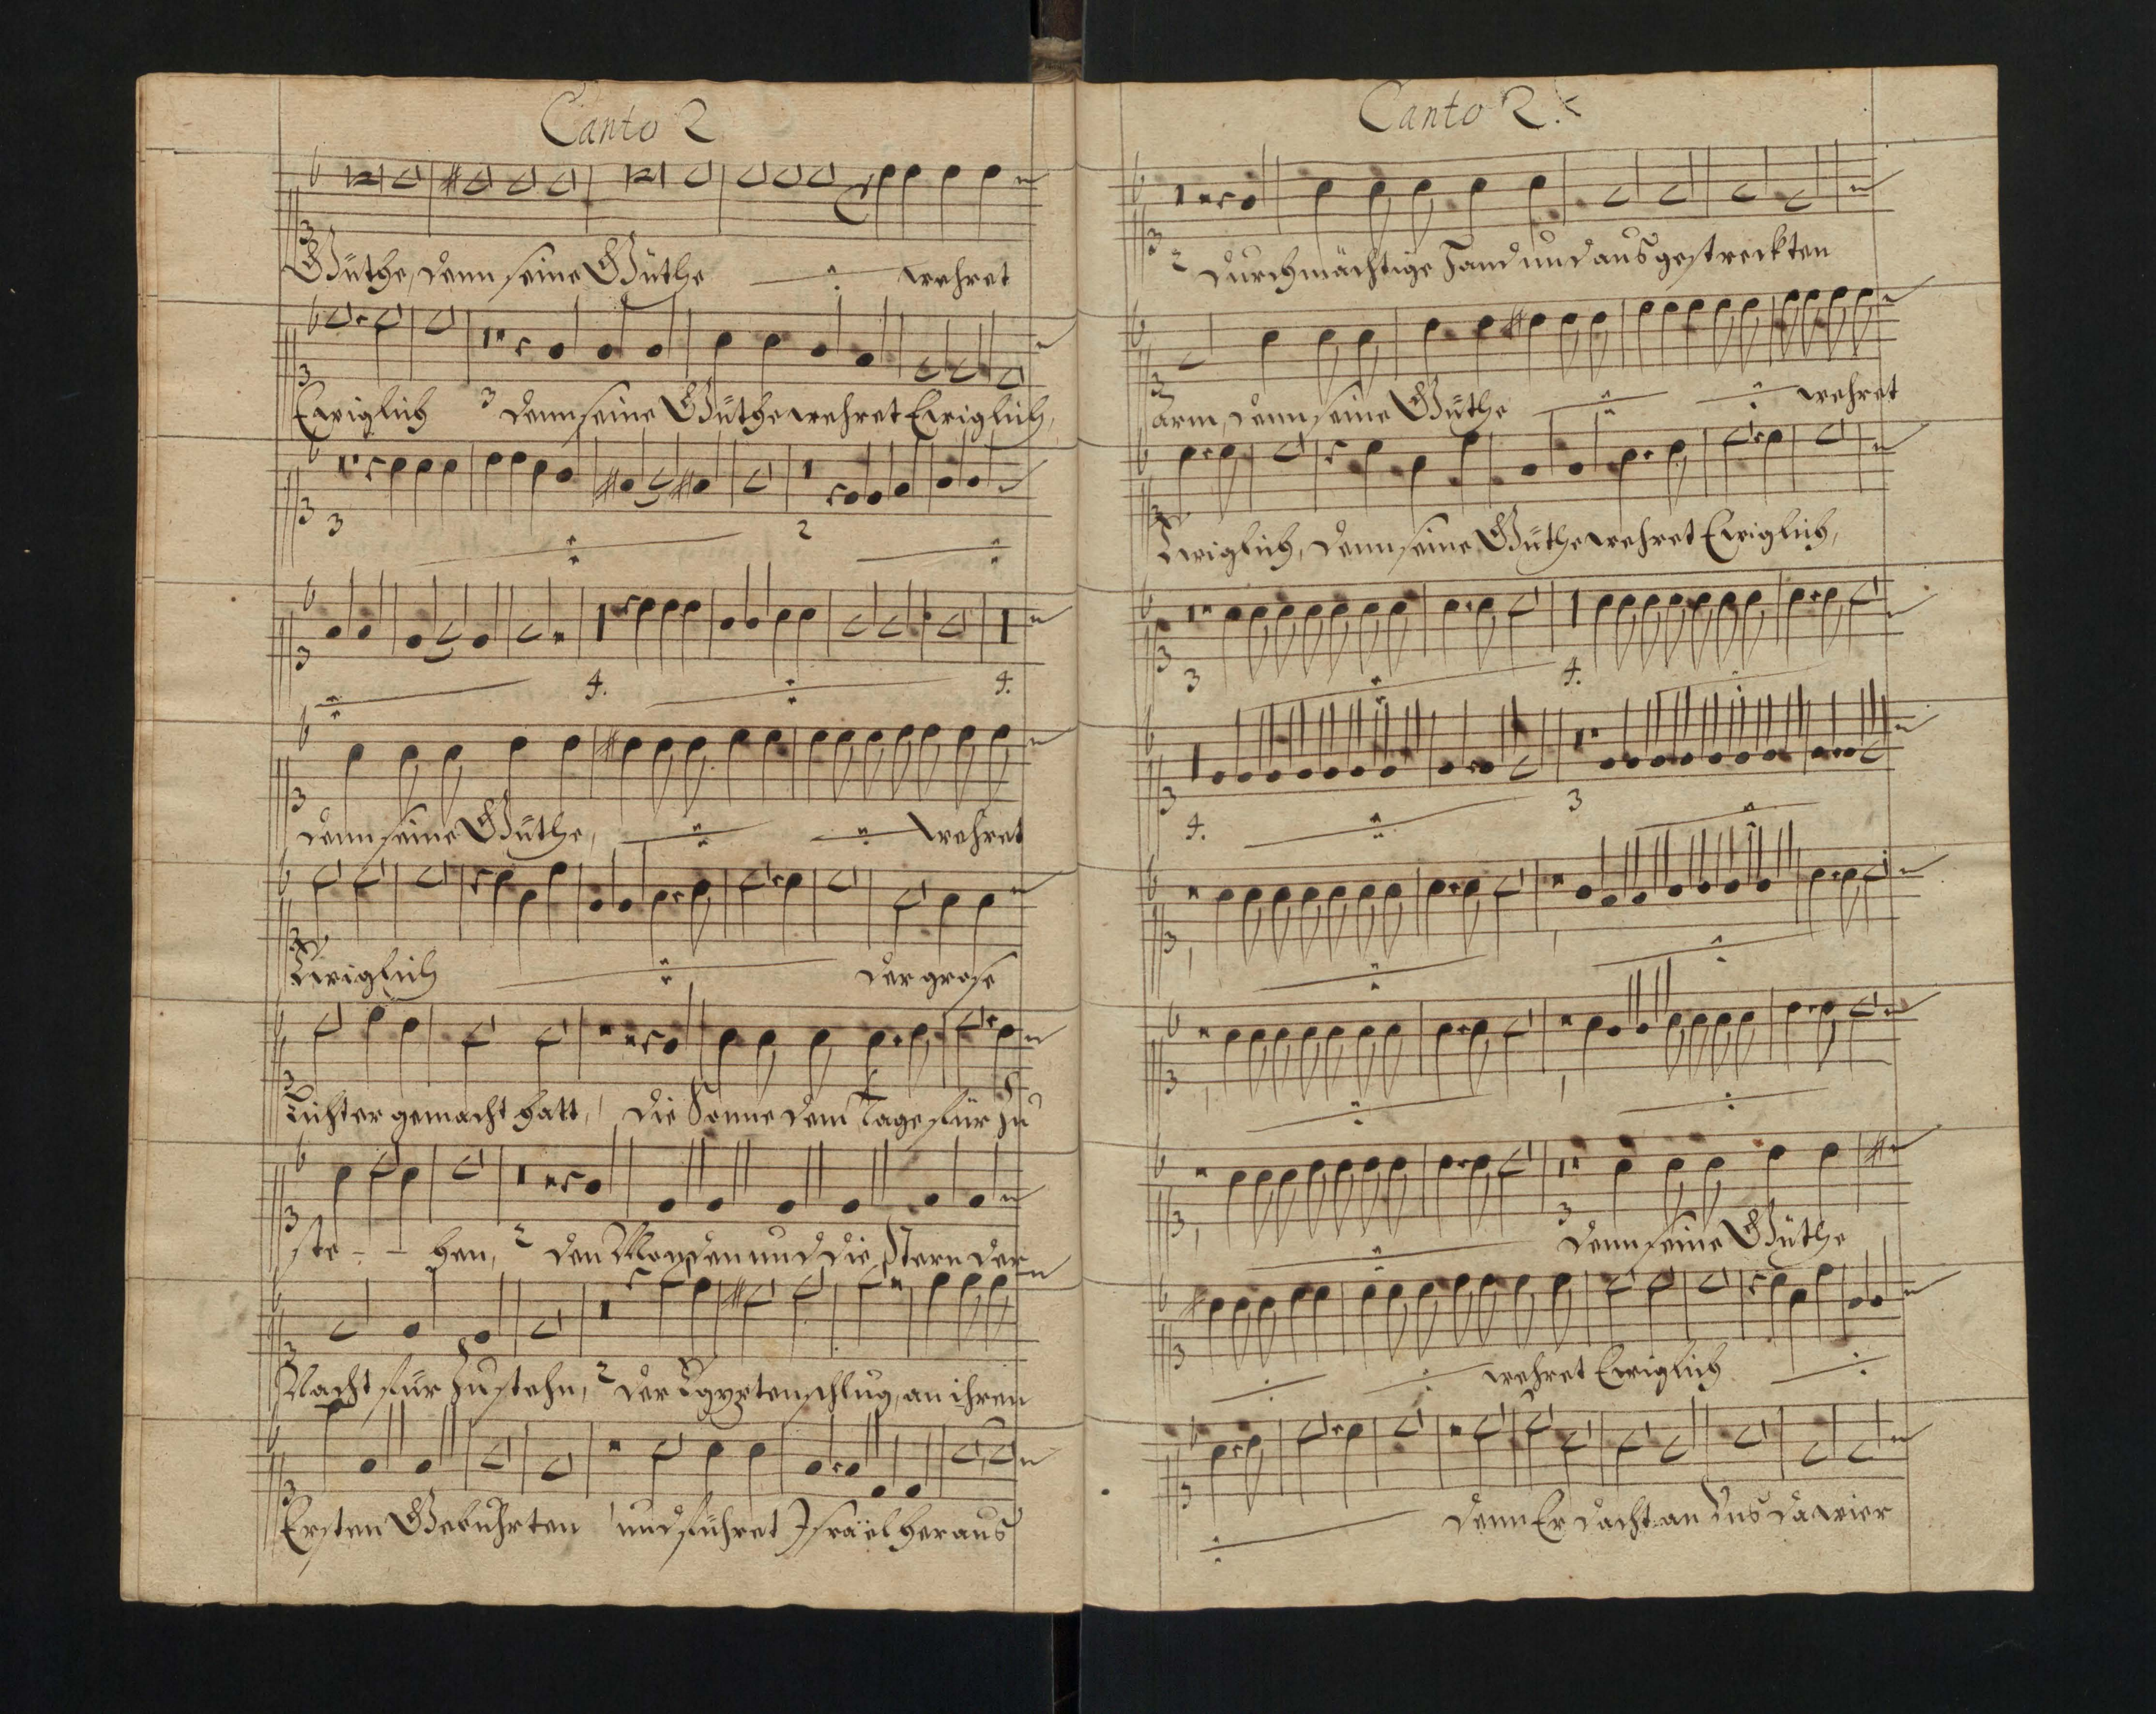 Canto 2
Güthe, denn seine Güthe wehret
Ewiglich 3 denn seine Güthe wehret Ewiglich,
3 2
4. 4.
denn seine Güthe, wehret
Ewiglich der grose
Lichter gemacht hatt, 1 die Sonne dem Tage für zu
ste - - hen, 2 den Monden und die Stern der
Nacht für zu stehn, 2 der Egypten schlug, an ihren
Ersten Gebuhrten 1 und führet Israel heraus
Canto 2.
2 durch mächtige Hand und ausgestreckten
arm, denn seine Güthe wehret
Ewiglich, denn seine Güthe wehret Ewiglich,
3 4.
4. 3
3 denn seine Güthe
wehret Ewiglich
denn Er dacht an Uns da wier